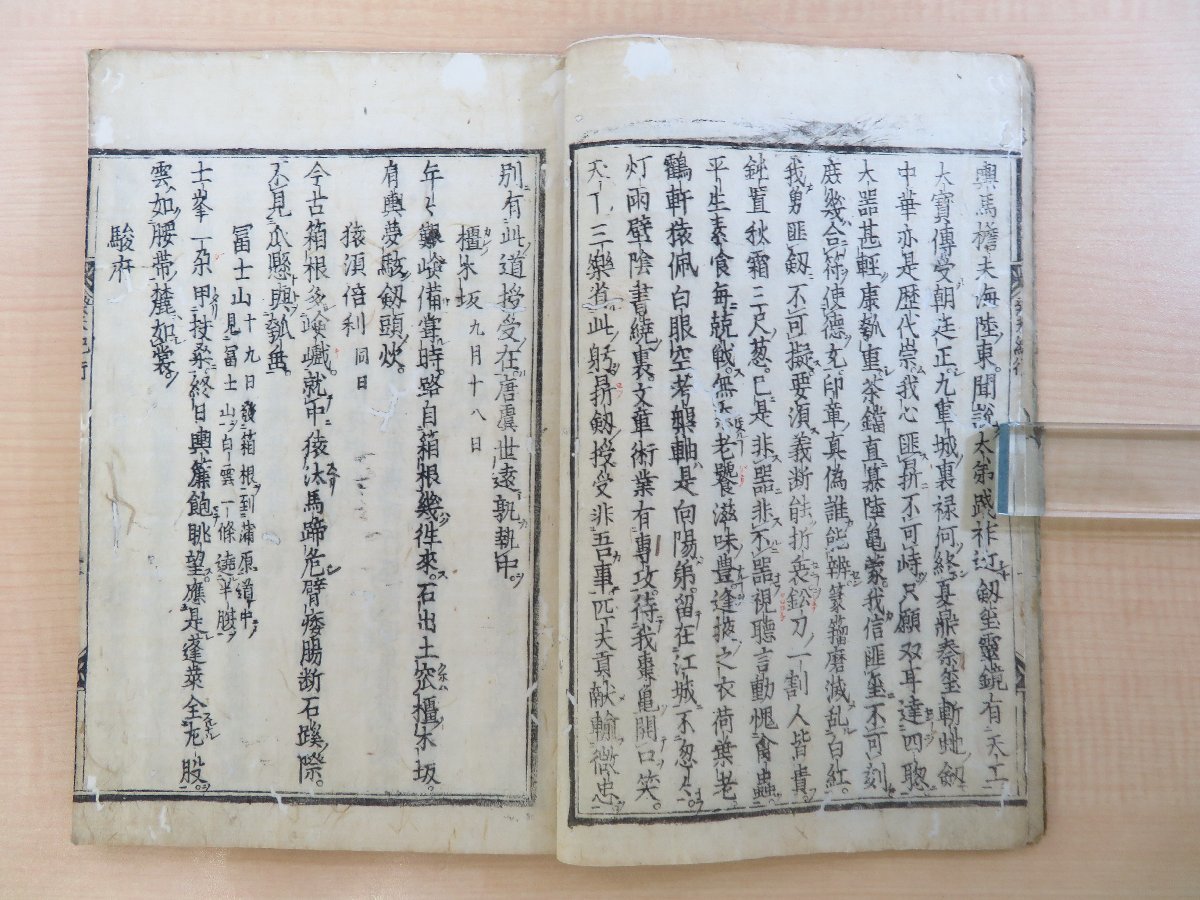 輿馬檐夫海陸東聞説太弟踐祚辺劔璽靈鏡有天工
大寶傳受朝廷正九重城裏禄何終夏鼎秦璽斬虵劔
中華亦是歴代崇我心匪昇不可峙只願双耳達四聰
大器甚輕康瓠重茶鐺直慕陸亀蒙我信匪璽不可刻
庶幾合符使德充印章真偽誰能辨篆籀磨滅乱白紅
我勇匪劔不可擬要須義断能折衷鉛刀一割人皆貴
鈍置秋霜三尺葱已是非器非不器視聴言動愧禽蟲
平生素食毎兢戦無老饕滋味豊逢掖之衣荷葉老
鶴軒猿佩白眼空考槃軸是向陽第留在江城不怱々
灯両壁陰書繞裏文章術業有專攻待我棗亀開口笑
天下三樂省此躬昜劔授受非吾事匹夫貢献輸微忠
別有此道授受在唐虞世遠孰執中
橿木坂九月十八日
年々艱嶮備嘗時路自箱根幾徃來石出土窊橿木坂
有輿夢駭劔頭炊
猿須倍利同日
今古箱根多嶮巇就中猿汰馬蹄危臂痠腸断石蹊際
不見爪懸輿瓠𫝶
冨士山十九日自箱根到蒲原道中
見冨士山白雲一條遶半腰
士峯一朶甲扶桒終日輿簾飽眺望應是蓬莱全尨股
雲如腰帯麓如裳
駿府